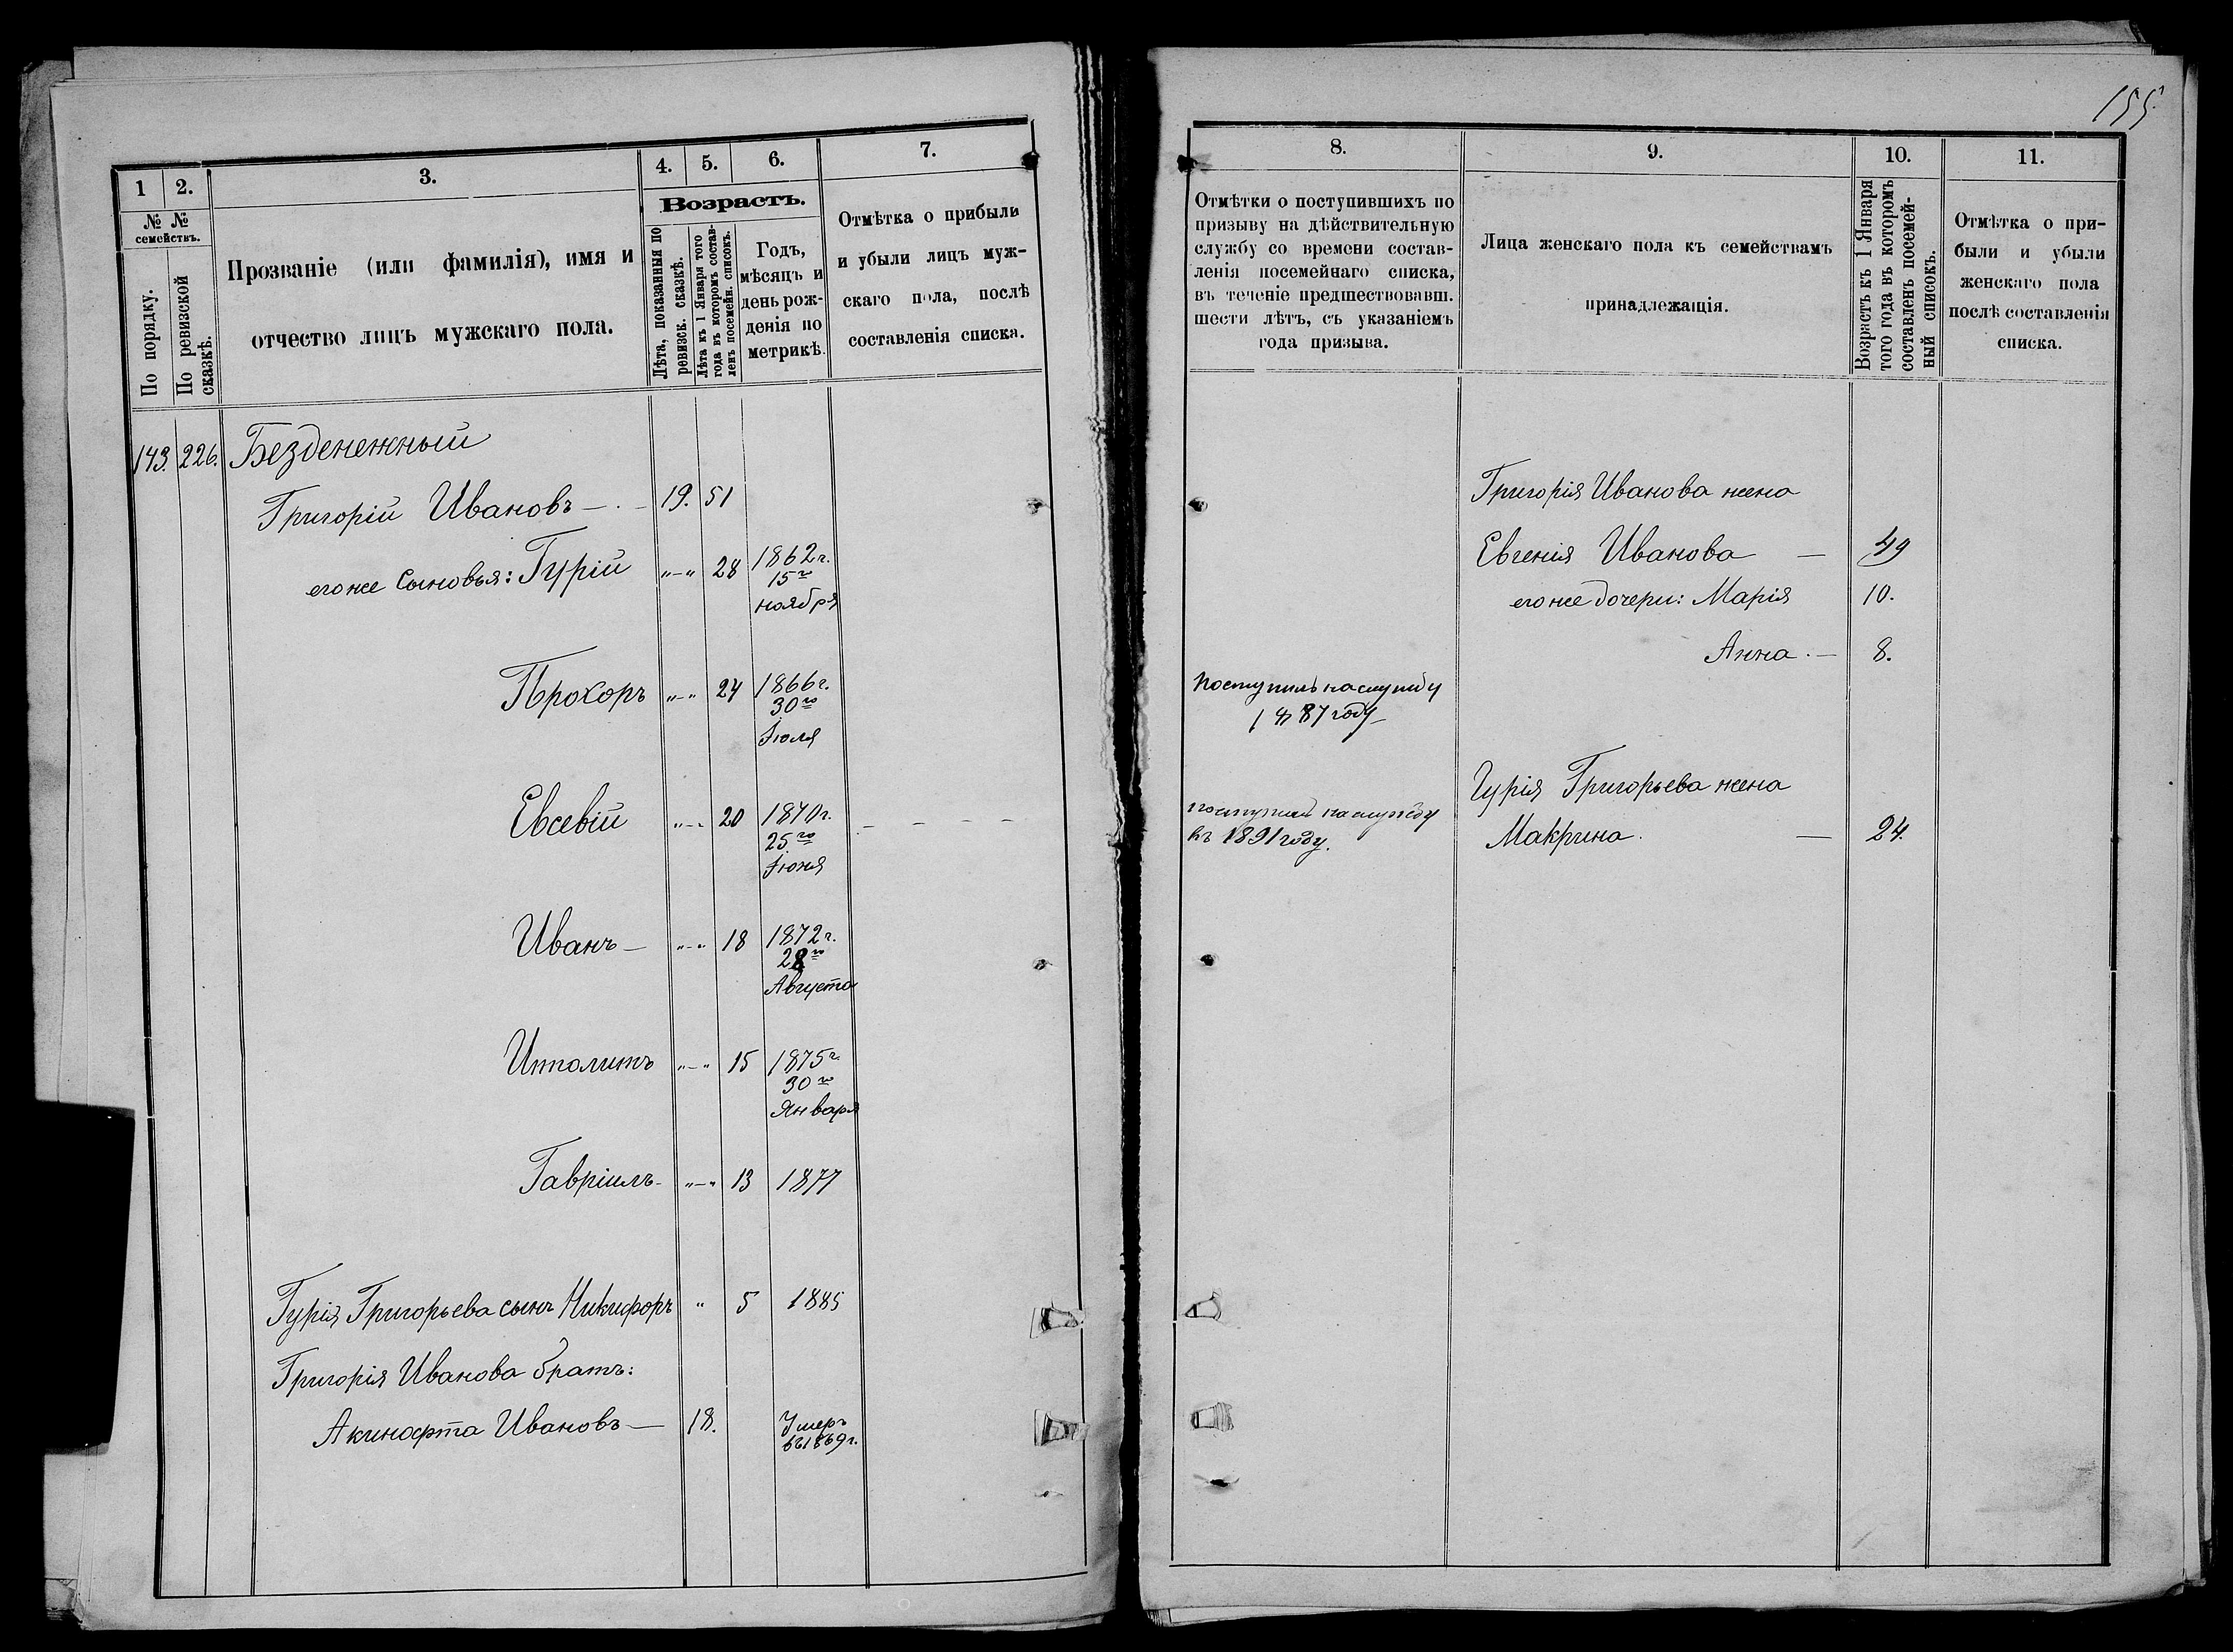 1
2.
3.
4.
5.
6.
7.
№ №
семействъ.
По порядку.
По ревизской
сказкѣ.
Прозваніе (или фамилія), имя и
отчество лицъ мужскаго пола.
Возрастъ.
Лѣта, показанныя по
ревизск. сказкѣ.
Лѣта къ 1 Января того
года въ которомъ состав-
ленъ посемейн. списокъ.
Годъ,
мѣсяцъ и
день рож-
денія по
метрикѣ.
Отмѣтка о прибыли
и убыли лицъ муж-
скаго пола, послѣ
составленія списка.
143. 226. Безденежный
Григорій Ивановъ — . — 19. 51
его же сыновья: Гурій „—„ 28 1862 г.
15го
ноября
Прохоръ „—„ 24 1866 г.
30го
Іюля
Евсевій „—„ 20 1870 г.
25го
Іюня
Иванъ — „—„ 18 1872 г.
28го
Августа
Иполитъ „—„ 15 1875 г.
30го
Января
Гавріилъ „—„ 13 1877
Гурія Григорьева сынъ Никифоръ „ 5 1885
Григорія Иванова братъ:
Акинофта Ивановъ — 18. Умеръ
въ 1869 г.
155
8.
9.
10.
11.
Отмѣтки о поступившихъ по
призыву на дѣйствительную
службу со времени состав-
ленія посемейнаго списка,
въ теченіе предшествовавш.
шести лѣтъ, съ указаніемъ
года призыва.
Лица женскаго пола къ семействамъ
принадлежащія.
Возрастъ къ 1 Января
того года въ которомъ
составленъ посемей-
ный списокъ.
Отмѣтка о при-
были и убыли
женскаго пола
послѣ составленія
списка.
Григорія Иванова жена
Евгенія Иванова — 49
его же дочери: Марія 10.
Анна . — 8.
Поступилъ на службу
1887 году
Гурія Григорьева жена
Макрина . — 24.
поступилъ на службу
въ 1891 году.